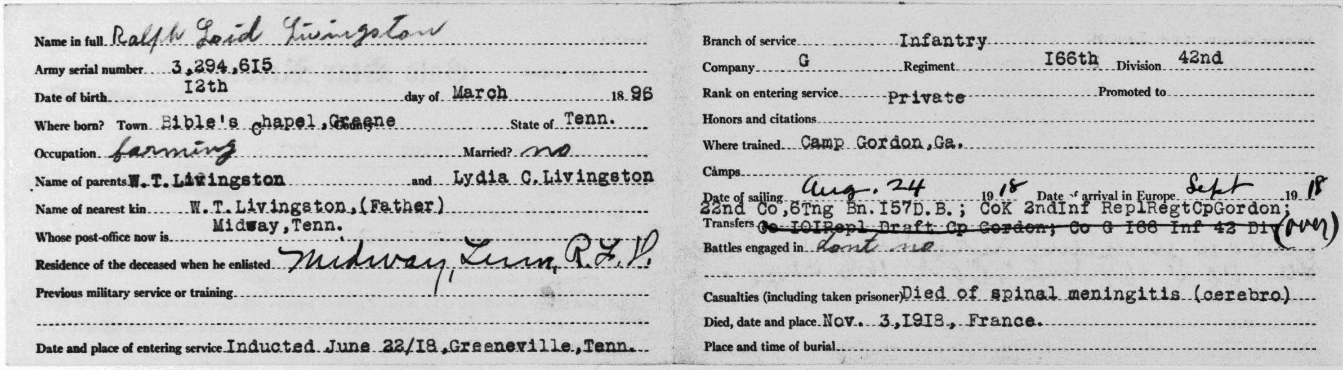 Name in full Ralph Loid Livingston
Army serial number 3,294,615
Date of birth 12th day of March 1896
Where born? Town Bible's Chapel, Greene County State of Tenn.
Occupation farming Married? no
Name of parents W.T.Livingston and Lydia C.Livingston
Name of nearest kin W.T.Livingston,(Father)
Whose post-office now is Midway,Tenn.
Residence of the deceased when he enlisted Midway, Tenn, R.F.D.
Previous military service or training
Date and place of entering service Inducted June 22/18,Greeneville,Tenn.
Branch of service Infantry
Company G Regiment 166th Division 42nd
Rank on entering service Private Promoted to
Honors and citations
Where trained Camp Gordon,Ga.
Camps
Date of sailing Aug. 24 1918 Date of arrival in Europe Sept 1918
22nd Co,6Tng Bn.157D.B.; CoK 2ndInf ReplRegtCpGordon;
Transfers Co 101Repl Draft Cp Gordon; Co G 166 Inf 42 Div (over)
Battles engaged in dont no
Casualties (including taken prisoner) Died of spinal meningitis (cerebro)
Died, date and place Nov. 3,1918, France.
Place and time of burial